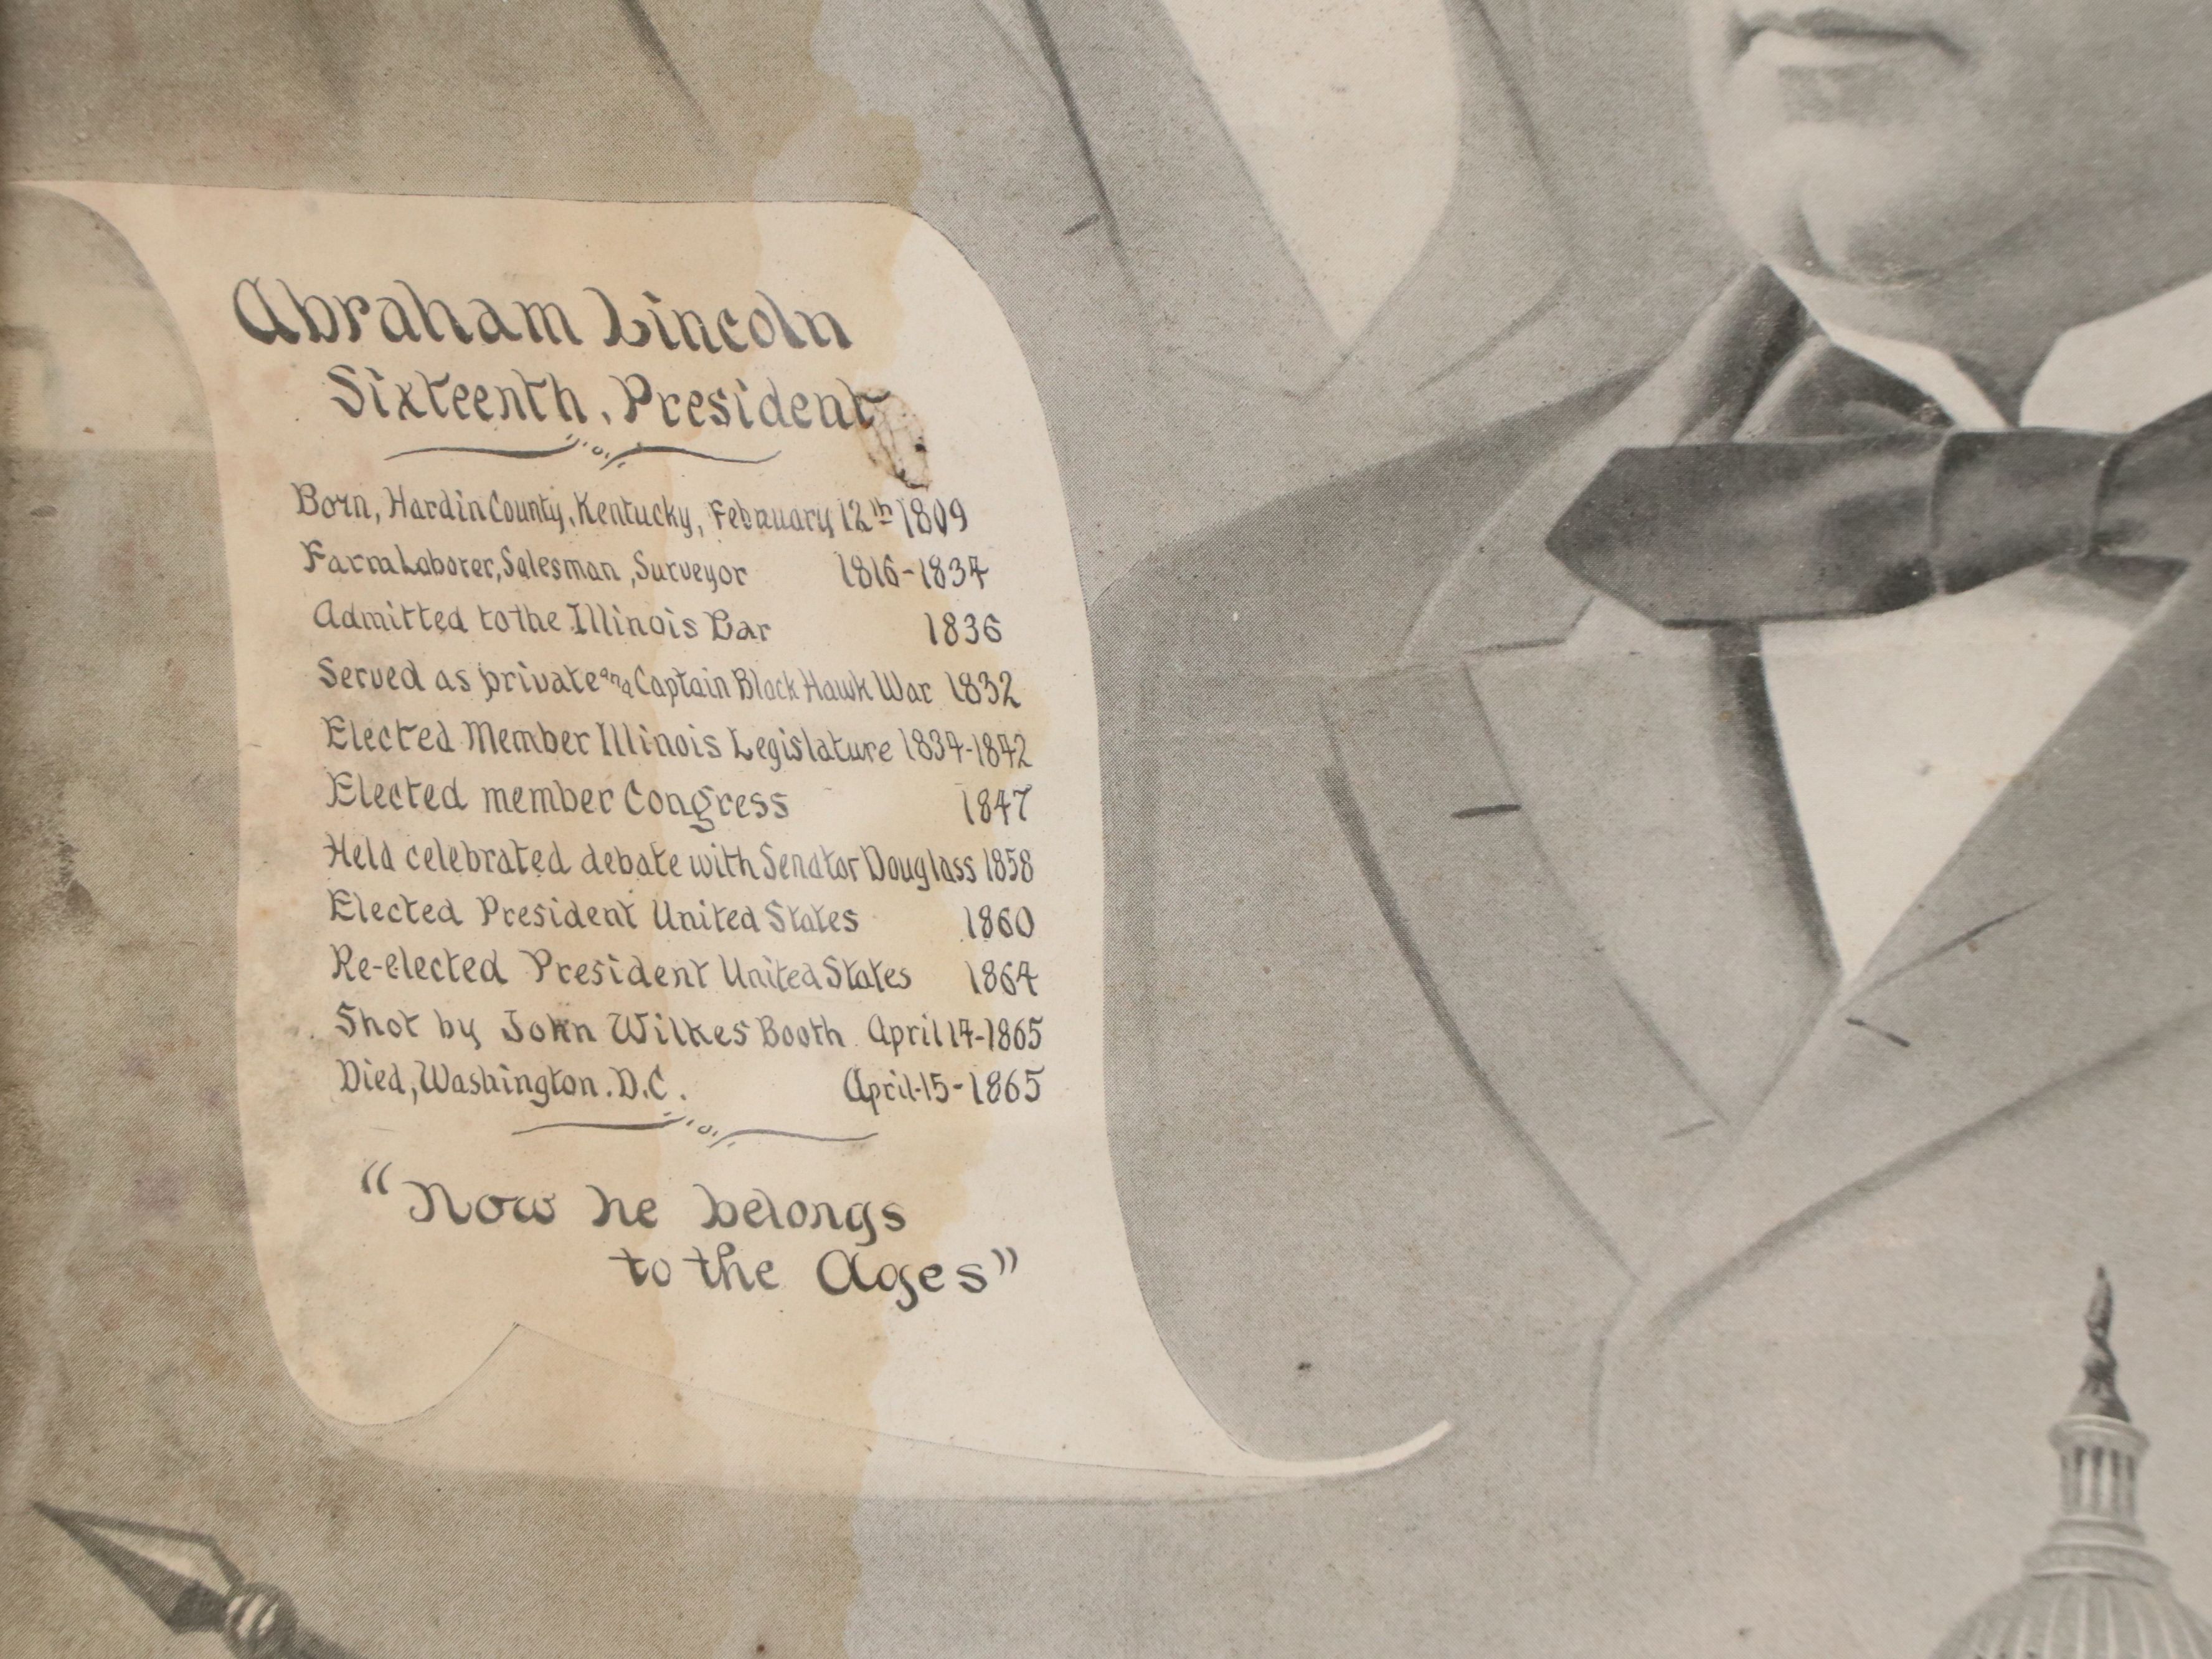 Abraham Lincoln
Sixteenth, President
Born, Hardin County, Kentucky, February 12th 1809
Farm Laborer, Salesman, Surveyor 1816-1834
Admitted to the Illinois Bar 1836
Served as private and Captain Black Hawk War 1832
Elected Member Illinois Legislature 1834-1842
Elected member Congress 1847
Held celebrated debate with Senator Douglass 1858
Elected President United States 1860
Re-elected President United States 1864
Shot by John Wilkes Booth April 14-1865
Died, Washington. D.C. April-15-1865
"Now he belongs
to the Ages"